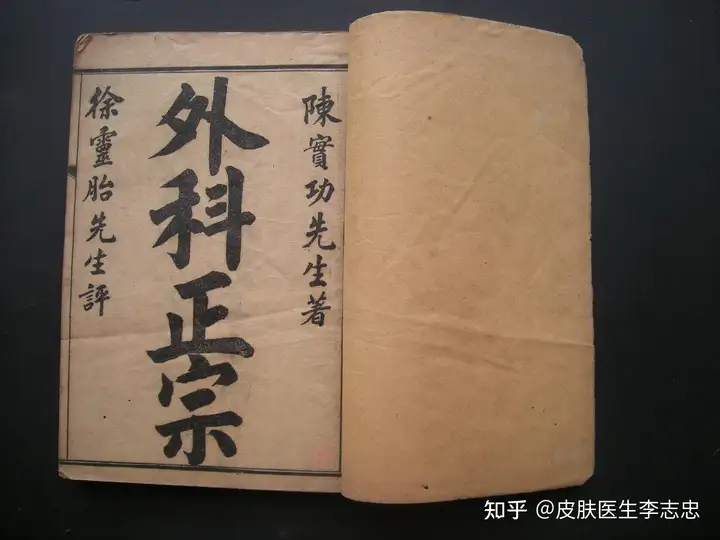 陳實功先生著
外科正宗
徐靈胎先生評
知乎 @皮肤医生李志忠